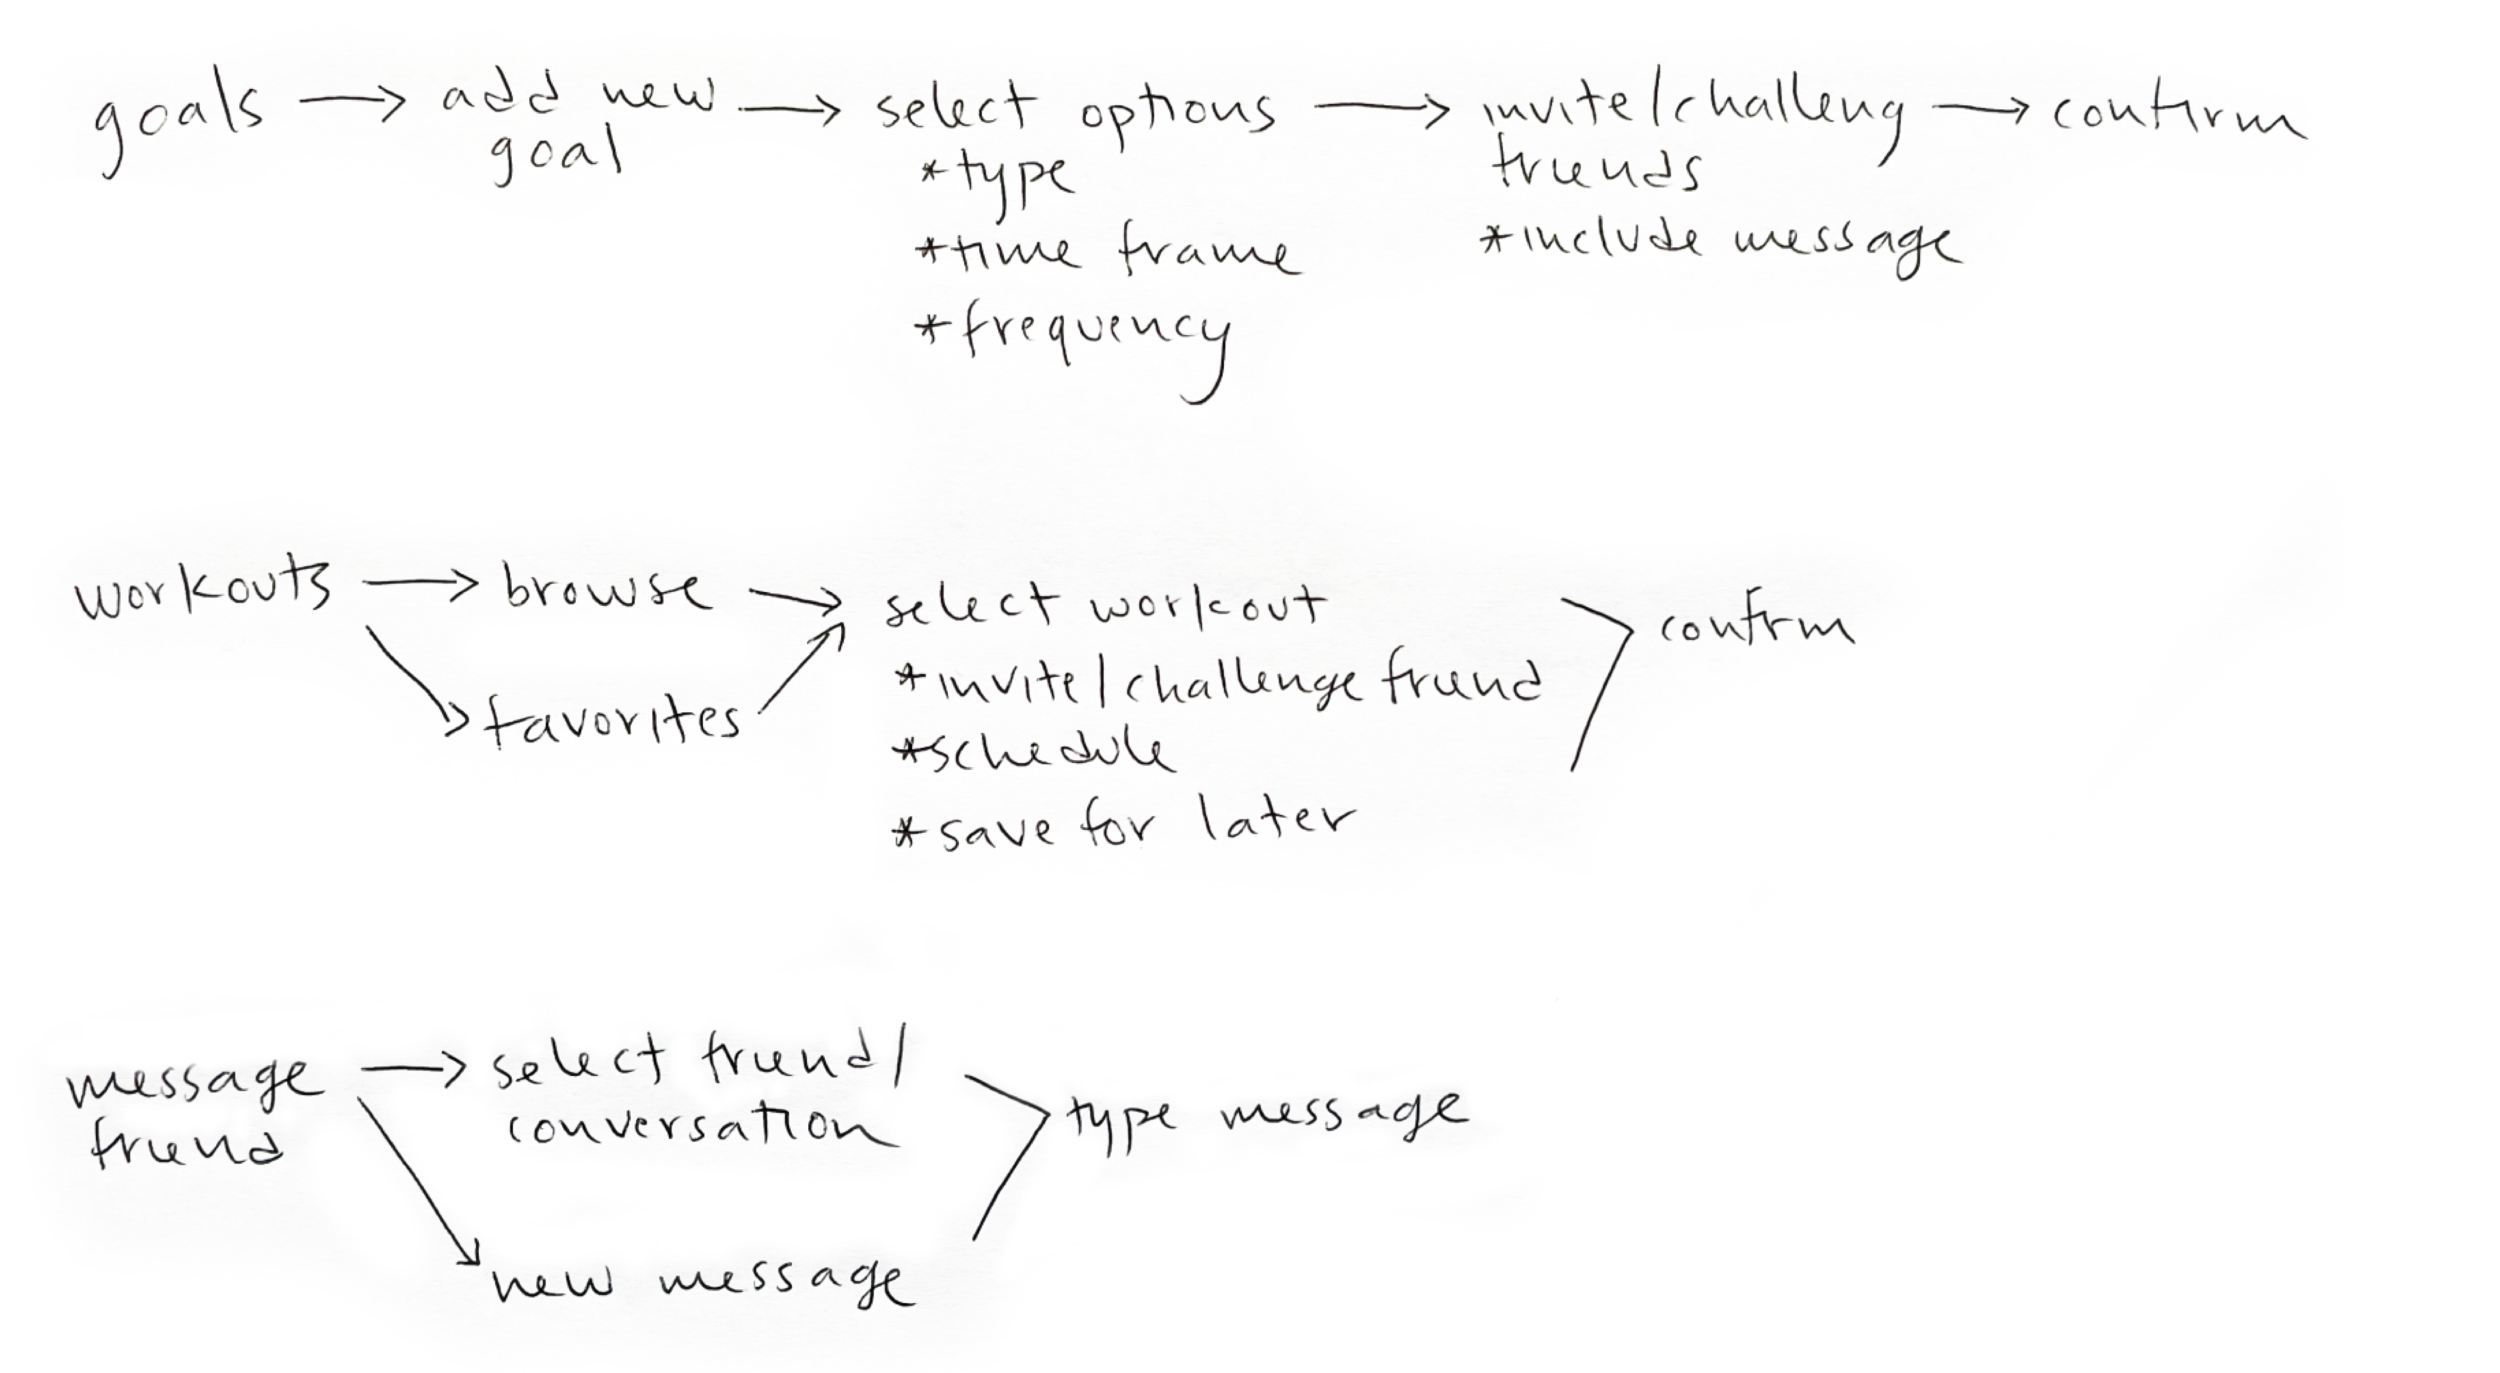 goals → add new goal → select options → invite/challeng friends → confirm
*type
*time frame
*frequency
*include message
workouts → browse → select workout > confirm
favorites
*invite/challenge friend
*schedule
*save for later
message friend → select friend/ conversation > type message
new message